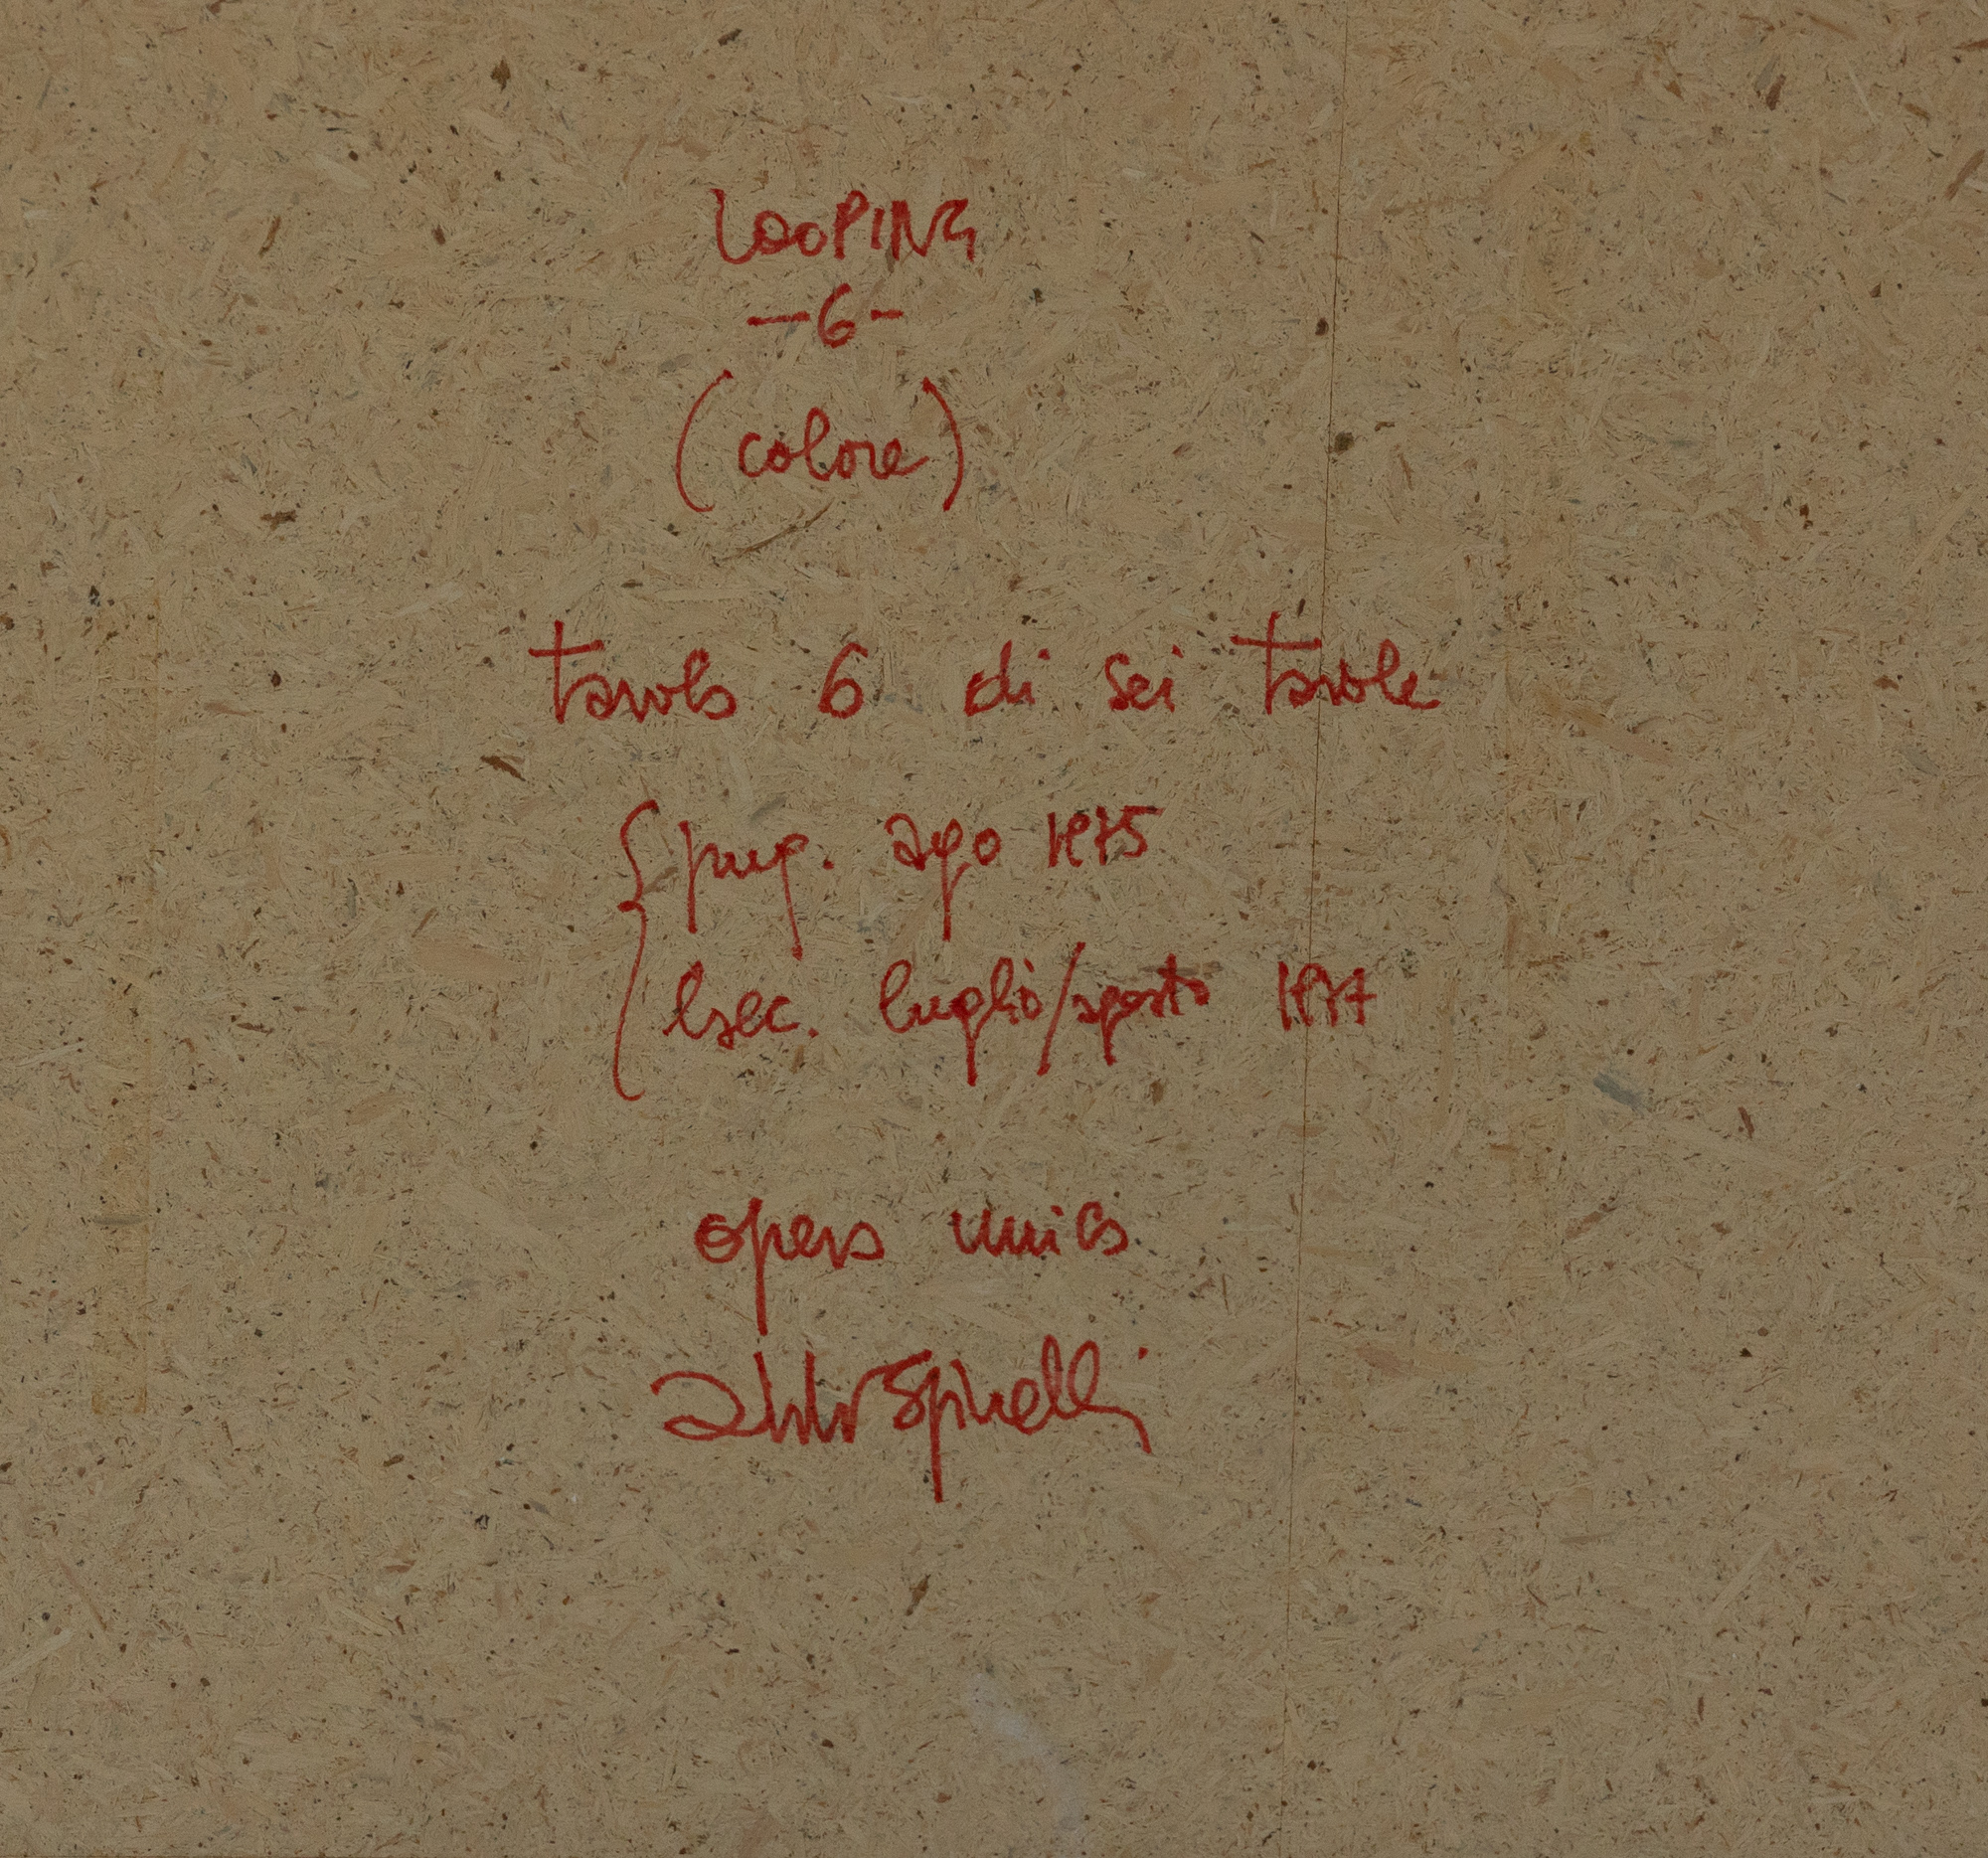 LOOPING
-6-
(colore)
tavola 6 di sei tavole
prog. ago 1975
esec. luglio/agosto 1977
opera unica
aldo Spinelli